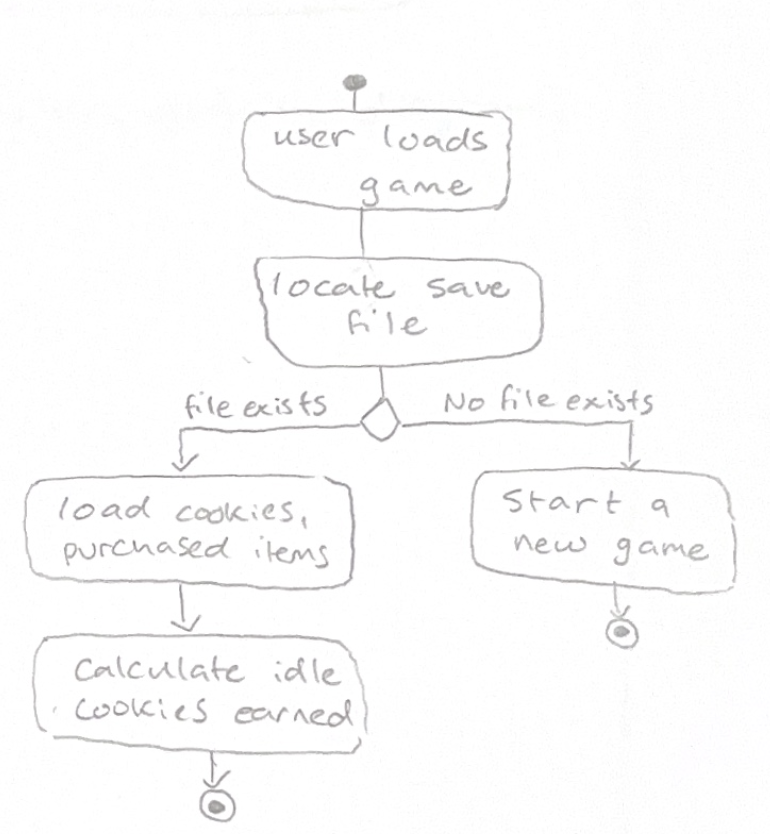 user loads
game
locate save
file
file exists
No file exists
load cookies,
purchased items
Start a
new game
Calculate idle
cookies earned